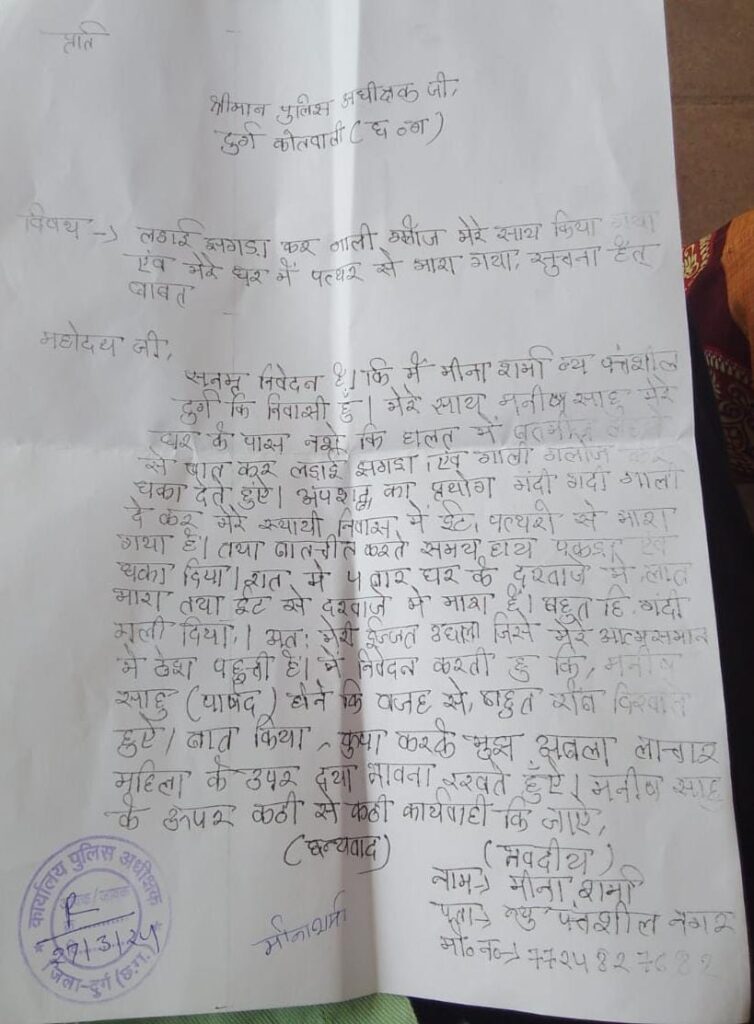 प्रति
श्रीमान पुलिस अधीक्षक जी,
दुर्ग कोतवाली (छ०ग)
विषय -> लडाई झगडा कर गाली ग्लौज मेरे साथ किया गया
एंव मेरे घर में पत्थर से मारा गया, सुचना हेतु
बाबत
महोदय जी,
सनम्र निवेदन है। कि मैं मीना शर्मा न्यु पंचशील
दुर्ग कि निवासी हुँ। मेरे साथ मनीष साहु मेरे
घर के पास नशे कि हालत में बतमीज लहजे
से बात कर लडाई झगडा एंव गाली गलौज कर
धका देते हुऐ। अपशब्द का प्रयोग गंदी गंदी गाली
दे कर मेरे स्थायी निवास में ईट, पत्थरो से मारा
गया है। तथा बातचीत करते समय हाथ पकडा एंव
धका दिया। रात मे 4 बार घर के दरवाजे मे लात
मारा तथा ईट से दरवाजे मे मारा है। बहुत हि गंदी
गाली दिया। अतः मेरी ईज्जत उछाला जिसे मेरे आत्मसमान
मे ठेश पहुची है। मै निवेदन करती हु कि, मनीष
साहु (पार्षद) होने कि वजह से, बहुत रौब दिखाते
हुऐ। बात किया, कृपा करके मुझ अबला लाचार
महिला के उपर दया भावना रखते हुँऐ। मनीष साहु
के ऊपर कठी से कठी कार्यवाही कि जाऐ,
(धन्यवाद)
(भवदीय)
नाम-> मीना शर्मा
पता-> न्यु पंचशील नगर
मो०नं०-> 7724827682
मीना शर्मा
कार्यालय पुलिस अधीक्षक
27/3/24
जिला-दुर्ग (छ.ग.)